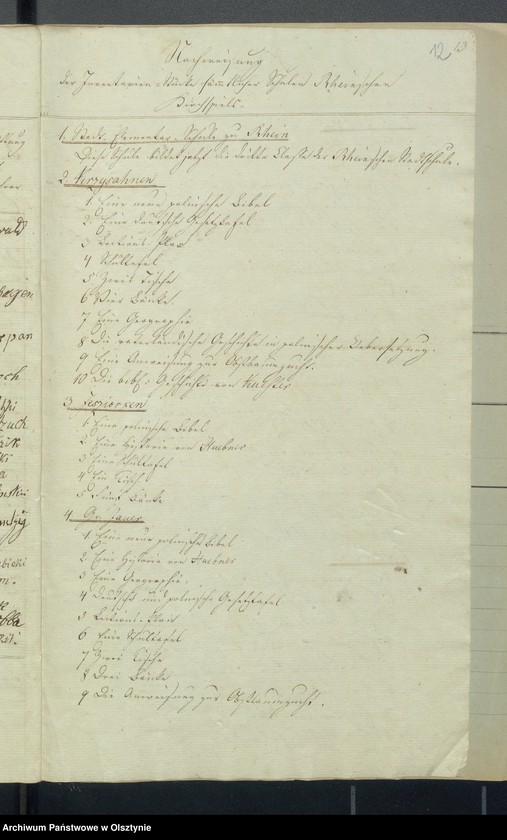 12 13
Nachweisung
der Inventarien-Stücke sämtlicher Schulen Rheinschen
Kirchspiels.
1. Stadt-Elementar-Schule zu Rhein
Diese Schule bildet jetzt die dritte Classe der Rheinschen Stadtschule.
2. Skrzypahnen
1 Eine neue polnische Bibel
2 Eine deutsche Gesetztafel
3 Lections-Plan
4 Schultafel
5 Zwei Tische
6 Vier Bänke
7 Eine Geographie
8 Die vaterländische Geschichte in polnischer Uebersetzung.
9 Eine Anweisung zur Obstbaumzucht.
10 Die bibl: Geschichte von
3 Jesziorken
1 Eine polnische Bibel
2 Eine Historie von Huebner
3 Eine Schultafel
4 Ein Tisch
5 Fünf Bänke
4 Gr. Jauer
1 Eine neue polnische Bibel
2 Eine Historie von Huebner
3 Eine Geographie
4 Deutsche und polnische Gesetztafel
5 Lections-Plan
6 Eine Schultafel
7 Zwei Tische
8 Drei Bänke
9 Die Anweisung zur Obstbaumzucht.
Archiwum Państwowe w Olsztynie